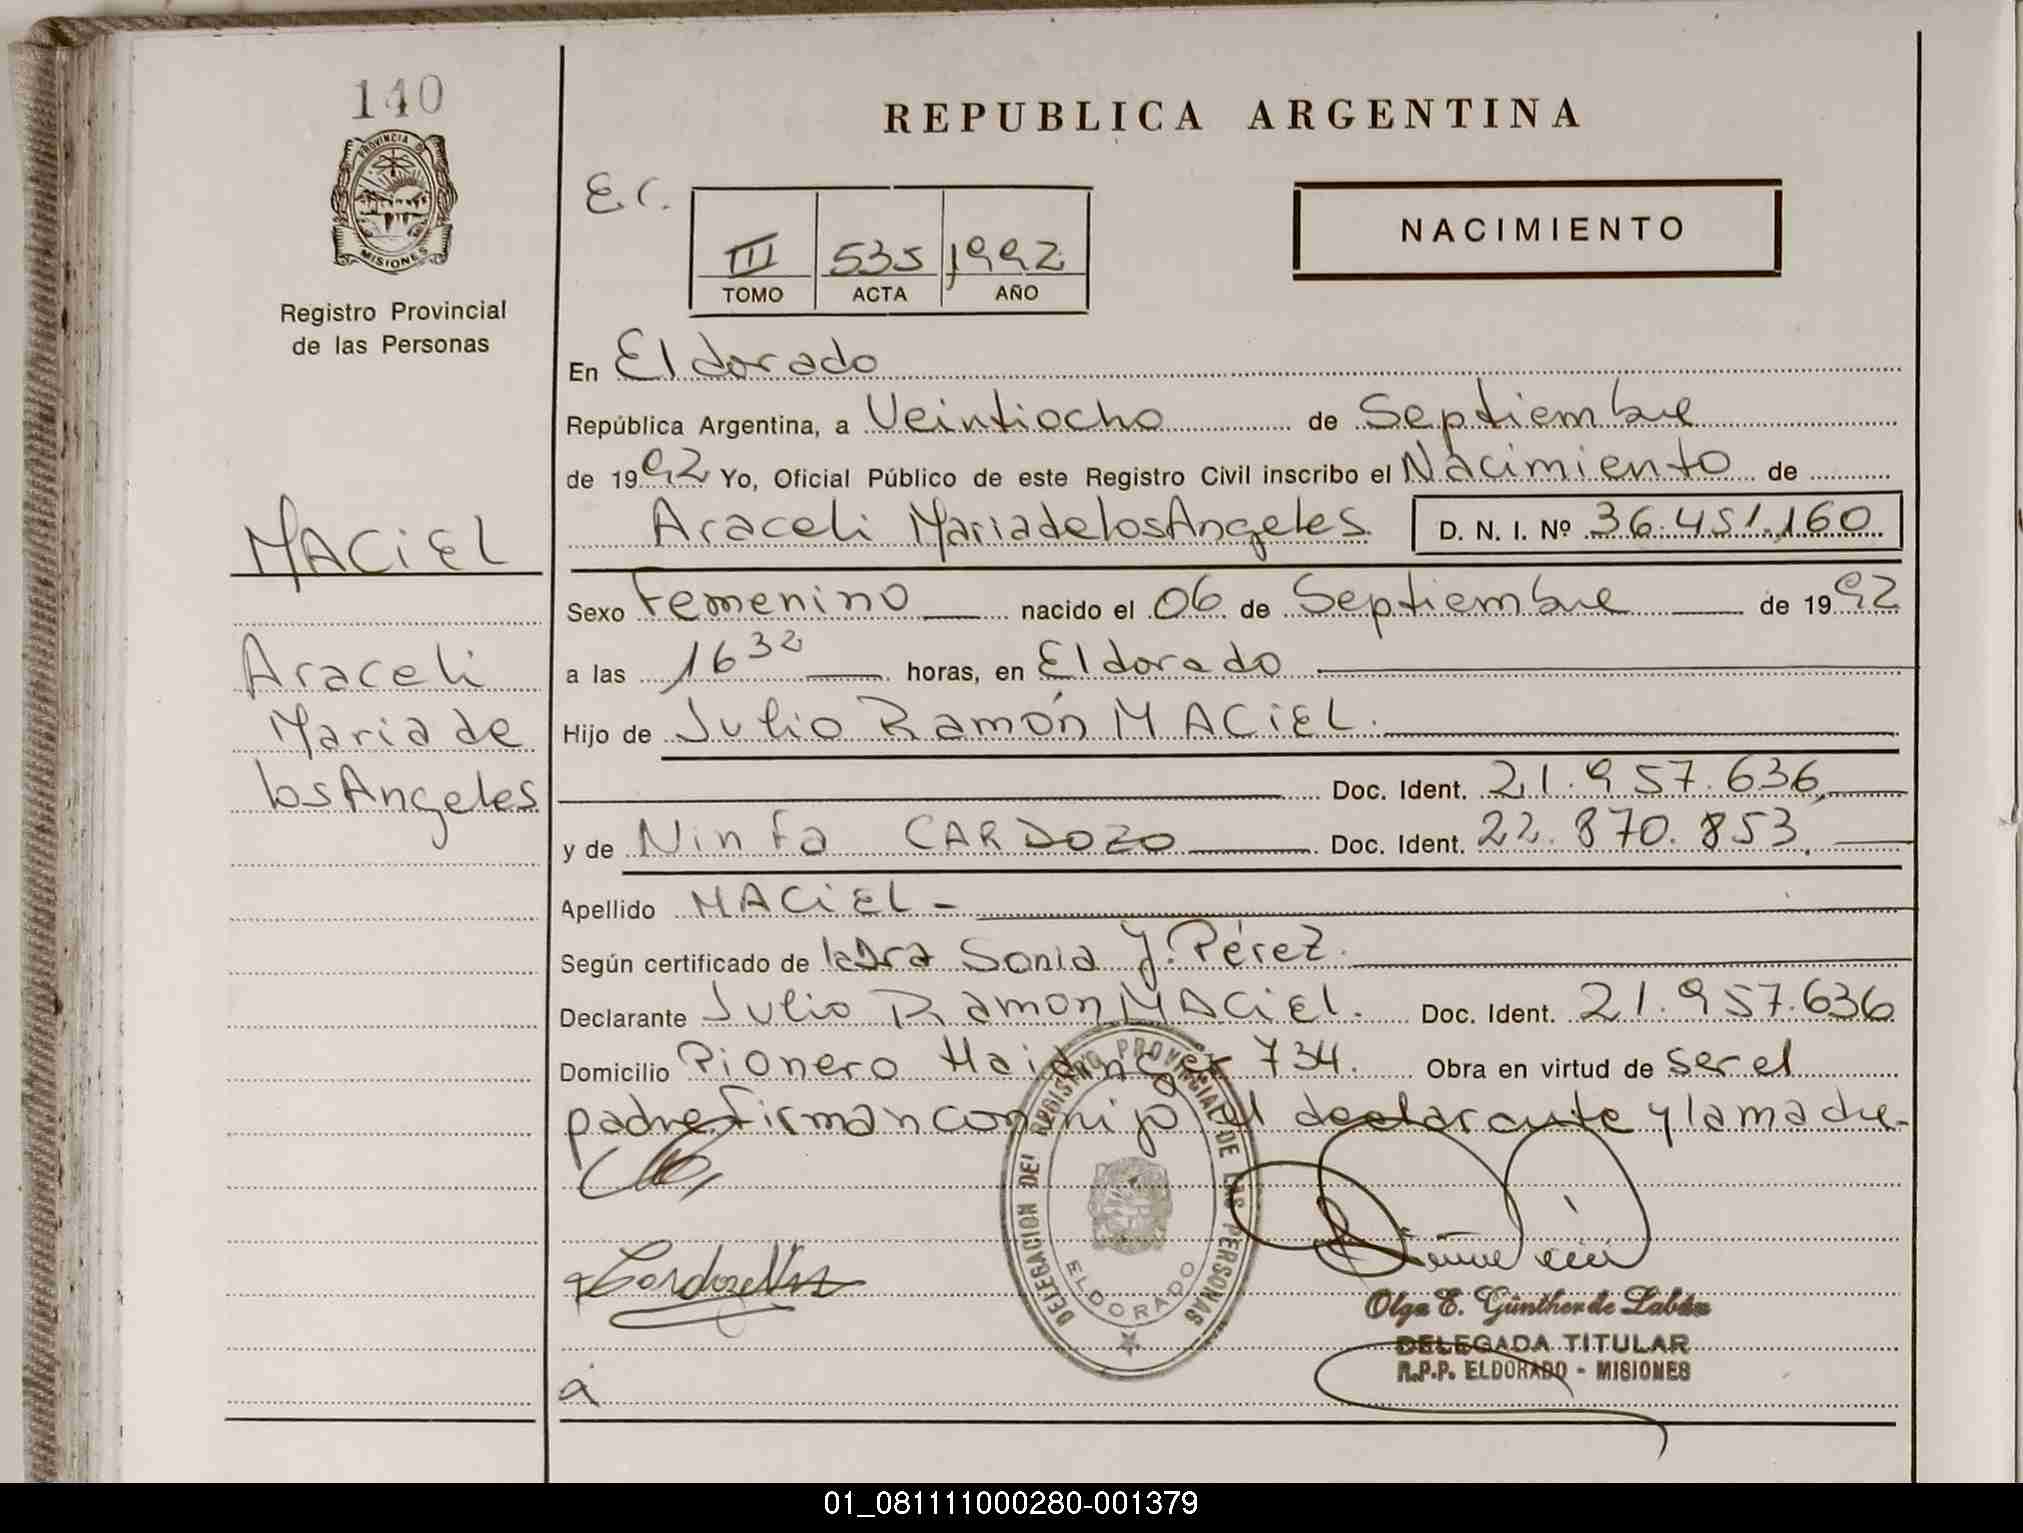 140
PROVINCIA DE
MISIONES
Registro Provincial
de las Personas
MACIEL
Araceli
Maria de
los Angeles
REPUBLICA ARGENTINA
E.C.
III 535 1992
TOMO ACTA AÑO
NACIMIENTO
En Eldorado
República Argentina, a Veintiocho de Septiembre
de 1992 Yo, Oficial Público de este Registro Civil inscribo el Nacimiento de
Araceli Maria de los Angeles D. N. I. Nº 36.451.160
Sexo Femenino nacido el 06 de Septiembre de 1992
a las 16 32 horas, en Eldorado
Hijo de Julio Ramón MACIEL.
Doc. Ident. 21.957.636,
y de Ninfa CARDOZO Doc. Ident. 22.870.853.
Apellido MACIEL -
Según certificado de la Dra Sonia J. Pérez.
Declarante Julio Ramon MACIEL. Doc. Ident. 21.957.636
Domicilio Pionero Haidinger 734. Obra en virtud de ser el
padre firman conmigo el declarante y la madre-
DELEGACION DEL REGISTRO PROVINCIAL DE LAS PERSONAS
ELDORADO
Olga E. Günther de Labán
DELEGADA TITULAR
R.P.P. ELDORADO - MISIONES
a
01_081111000280-001379